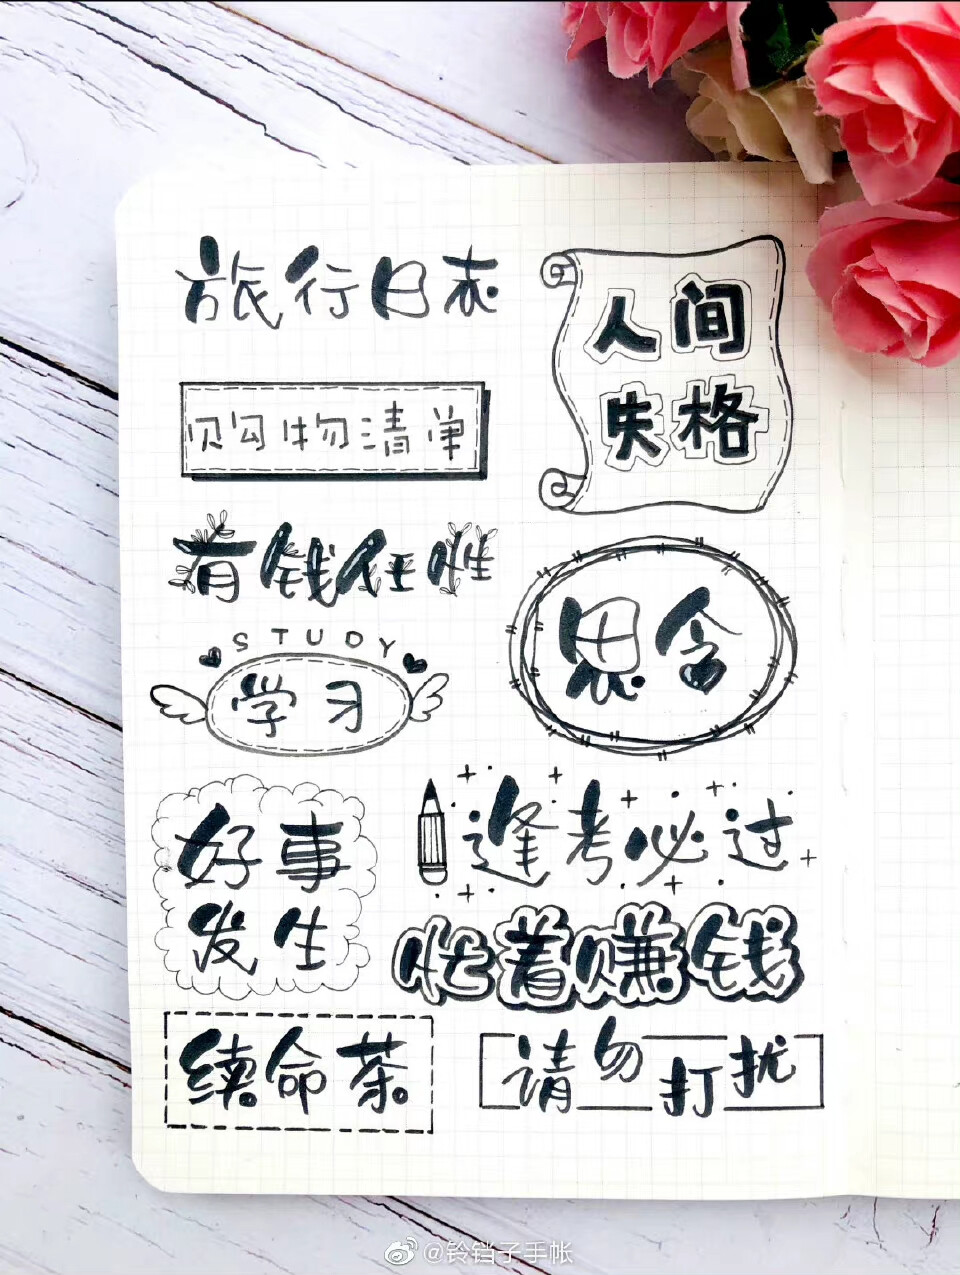 旅行日志
人间
失格
购物清单
有钱任性
STUDY
学习
思念
好事
发生
逢考必过
忙着赚钱
续命茶
请勿打扰
@铃铛子手帐